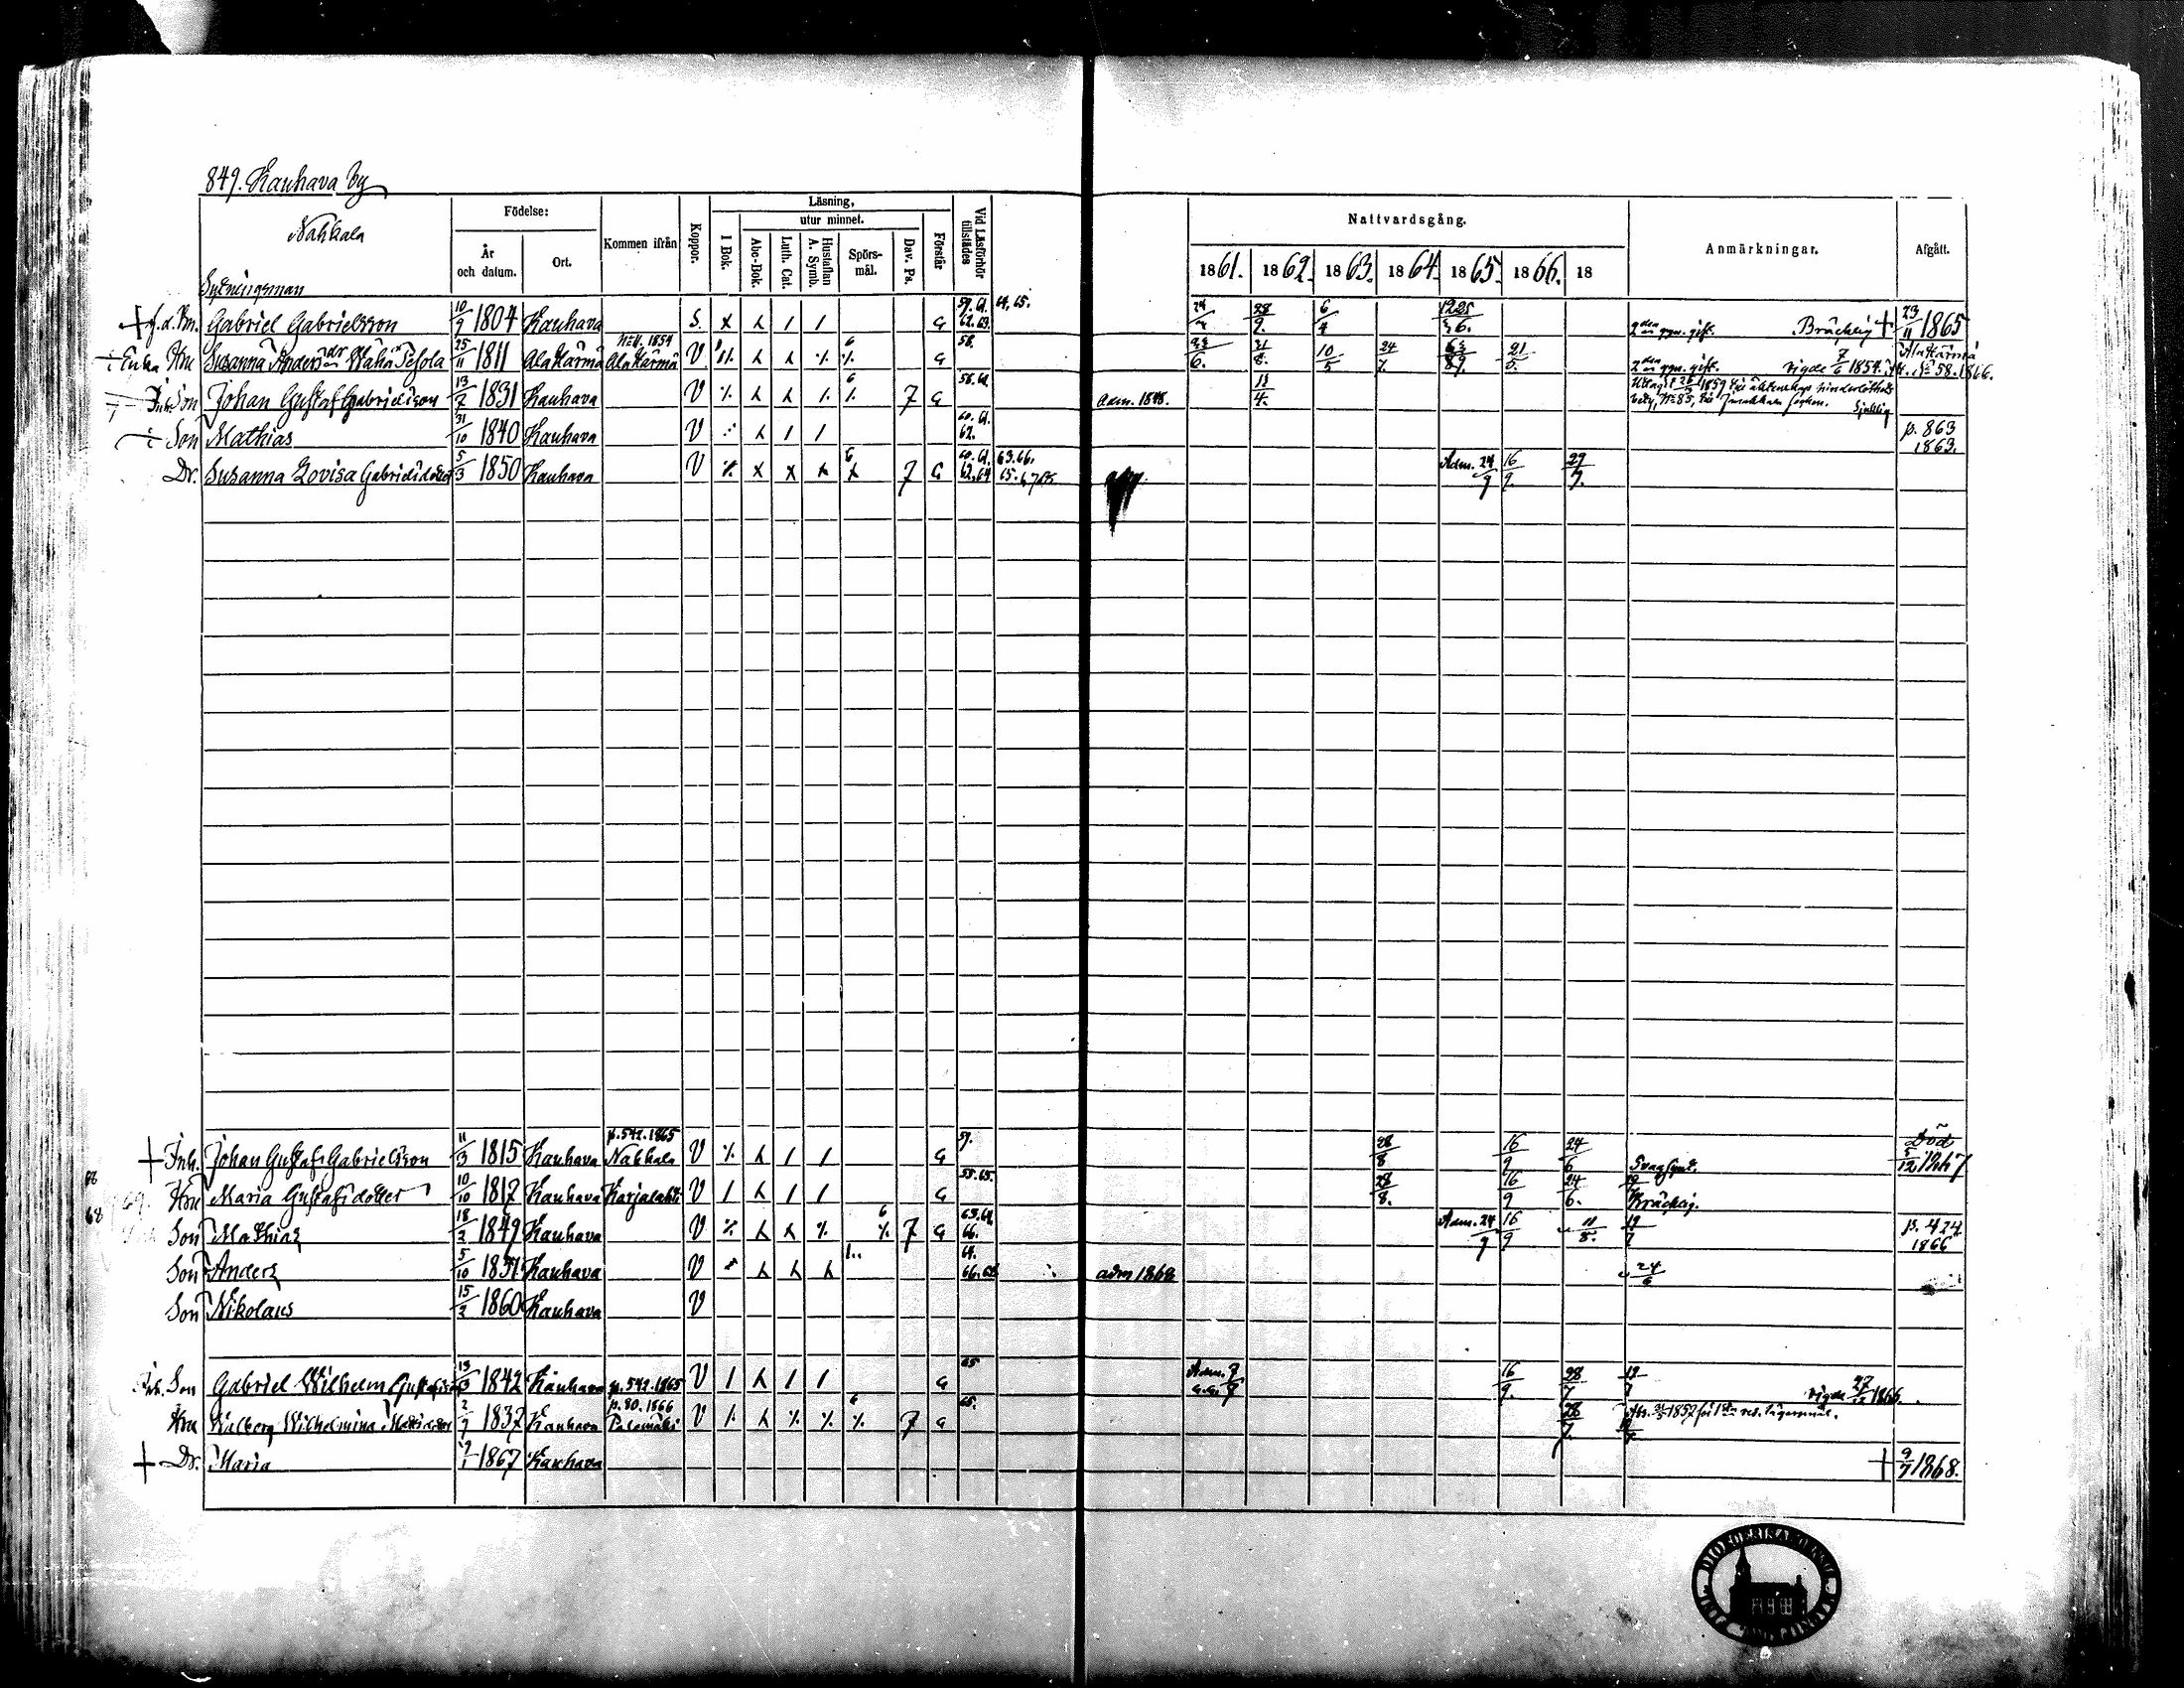 849. Kauhava by
Nahkala
Födelse:
År och datum.
Ort.
Kommen ifrån
Koppor.
Läsning,
I Bok.
utur minnet.
Abc-Bok.
Luth. Cat.
Hustaflan A. Symb.
Spörsmål.
Dav. Ps.
Förstår
Vid Läsförhör tillstädes
Nattvardsgång.
1861. 1862. 1863. 1864. 1865. 1866. 18
Anmärkningar.
Afgått.
Sytningsman
Gabriel Gabrielsson 10/9 1804 Kauhava S. G 59. 61. 62. 63. 64. 65. 28/9. 6/4 2den ggn. gift. Bräcklig + 23/11 1865
Enka Hru Susanna Andersdr 25/11 1811 Ala Härmä Ala Härmä V G 58. 31/8. 10/5 24/7. 21/ 2den ggn. gift. vigde 7/6 1854. Ala Härmä № 58. 1866.
Son Johan Gustaf Gabrielsson 13/2 1831 Kauhava V 6 7 G 58. 61. Adm. 1848. 11/4. 1859 Sjuklig
Son Mathias 31/10 1840 Kauhava V 60. 61. 62. p. 863 1863.
Dr. Susanna Lovisa Gabrielsdotter 5/3 1850 Kauhava V 6 7 G 60. 61. 62. 64 63. 66. 65. Adm. 24/9 16/9. 29/7.
+ Inh. Johan Gustaf Gabrielsson 11/3 1815 Kauhava p. 542. 1865 Nahkala V G 59. 28/8 16/9 24/6 Svagsynt. Död 5/12 1867
Hru Maria Gustafsdotter 10/10 1817 Kauhava Karjalahti V G 55. 65. 28/8. 16/9 24/6. Bräcklig.
68
Son Mathias 18/2 1849 Kauhava V 6 7 G 63. 64. 66. Adm. 24/9 16/9 11/5. 19/7 p. 424 1866
Son Anders 5/10 1851 Kauhava V 64. 66. 68 adm 1868 24/6
Son Nikolaus 15/2 1860 Kauhava V
Inh. Son Gabriel Wilhelm Gustafsson 13/3 1842 Kauhava p. 542. 1865 V G 65 Adm. 16/9. 28/7 19/7 vigde 27/12 1866.
Hru Walborg Wilhelmina Mattsdotter 2/7 1837 Kauhava p. 80. 1866 Palomäki V 6 7 G 65. 28/7. 1857 för 1sta res. lägersmål.
+ Dr. Maria 1867 Kauhava + 9/7 1868.